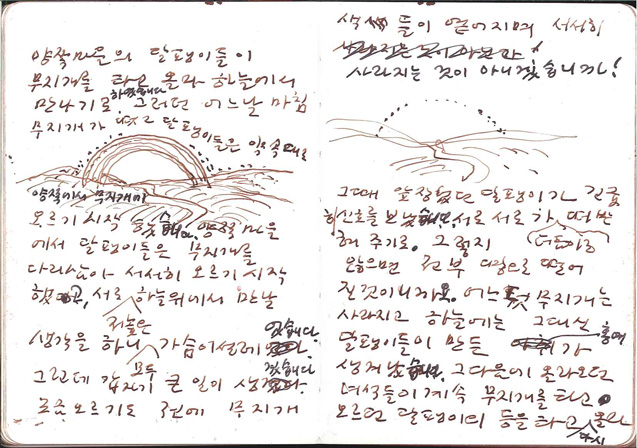 양쪽마을의 달팽이들이
무지개를 타고 올라 하늘에서
만나기로 하였습니다. 그러던 어느날 마침
무지개가 떴고 달팽이들은 약속대로
양쪽에서 무지개에
오르기 시작했습니다. 양쪽마을
에서 달팽이들은 무지개를
다리삼아 서서히 오르기 시작
했고, 서로 하늘위에서 만날
생각을 하니 가슴이 설레었습니다.
모두
그런데 갑자기 큰 일이 생겼습니다.
오르기도 전에 무지개
색들이 옅어지며 서서히
사라지는 것이 아니겠습니까!
그때 앞장섰던 달팽이가 긴급
신호를 보냈습니다. 서로 서로가 떠받
해 주기로. 그렇지
않으면 전부 땅으로 떨어
질것이니까요. 어느덧 무지개는
사라지고 하늘에는 그대신
달팽이들이 만든 가
생겨났습니다. 그다음에 올라오던
녀석들이 계속 무지개를 타고
오르던 달팽이의 등을 타고 올라
다시